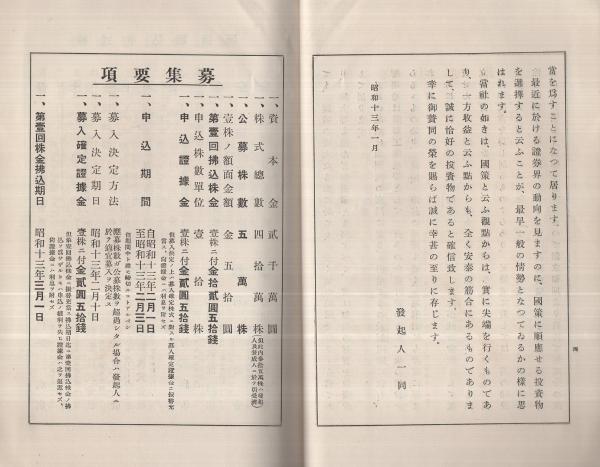 當を爲すことになつて居ります。
最近に於ける證券界の動向を見ますのに、國策に順應せる投資物
を選擇すると云ふことが、最早一般の情勢となつてゐるかの樣に思
はれます。
當社の如きは、國策と云ふ觀點からは、實に尖端を行くものであ
り、一方收益と云ふ點からも、全く安泰な筋合にあるものでありま
して、誠に恰好の投資物であると確信致します。
幸に御贊同の榮を賜らば誠に幸甚の至りに存じます。
昭和十三年一月
發起人一同
四
募集要項
一、資本金 貳千萬圓
一、株式總數 四拾萬株
一、公募株數 五萬株
一、壹株ノ額面金額 金五拾圓
一、第壹回拂込株金 壹株ニ付金拾貳圓五拾錢
一、申込株數單位 壹拾株
一、申込證據金 壹株ニ付貳圓五拾錢
一、申込期間 自昭和十三年二月一日
至昭和十三年二月三日
一、募入決定方法 應募株數ガ公募株數ヲ超過シタル場合ハ發起人ニ
於テ適宜募入ヲ決定ス
一、募入決定期日 昭和十三年二月十日
一、募入確定證據金 壹株ニ付貳圓五拾錢
一、第壹回株金拂込期日 昭和十三年三月一日